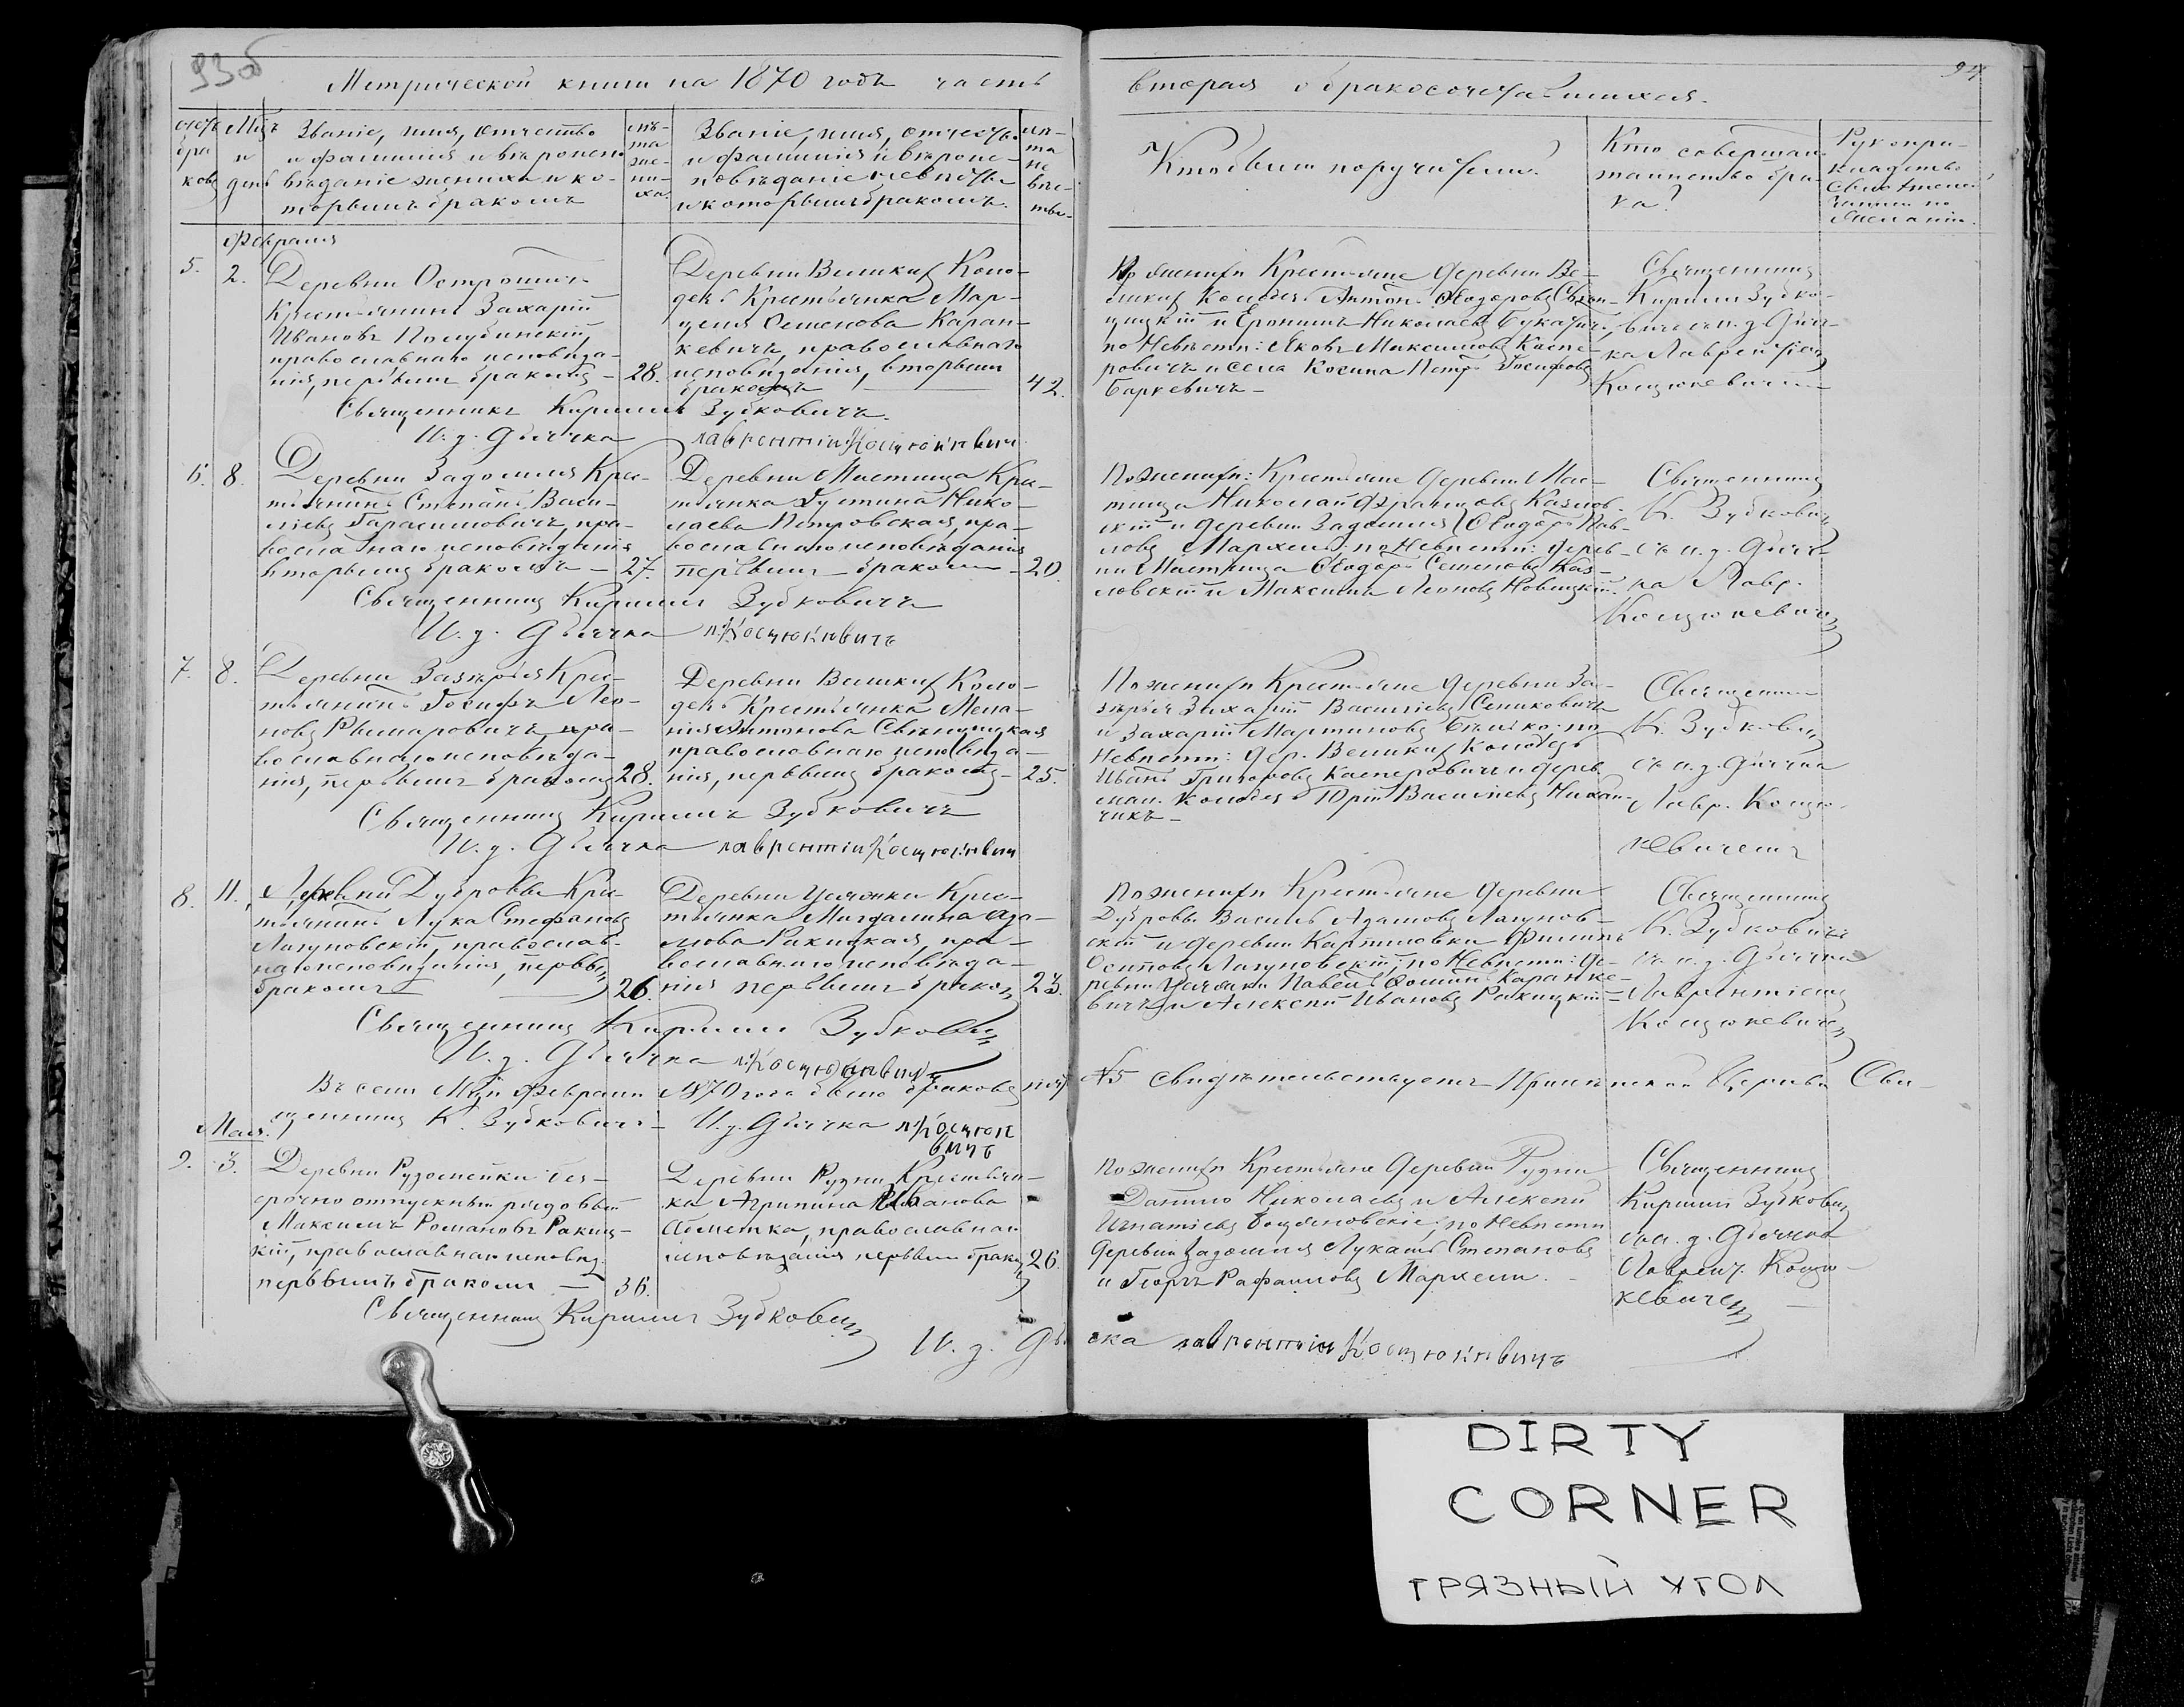 93об
94
Метрической книги на 1870 годъ часть
вторая о бракосочетавшихся.
счетъ бра ковъ
Мцъ и день
Званіе, имя, отчество
и фамилія и вѣроиспо
вѣданіе жениха и ко-
торымъ бракомъ
лѣ-
та
же-
ни-
ха.
Званіе, имя, отчество
и фамилія и вѣроис-
повѣданіе невѣсты
и которымъ бракомъ.
лѣ-
та
не
вѣс-
ты.
Кто были поручители?
Кто совершал
таинство бра-
ка?
Рукопри-
кладство
свидѣтелей
записи по
желанію.
Февраля
5.
2.
Деревни
Крестьянинъ Захарій
Ивановъ
православнаго исповѣда-
нія, первымъ бракомъ
28.
Деревни Великихъ Коло-
децъ Крестьянка Мар-
целя Семенова Каран-
кевичъ, православнаго
исповѣданія, вторымъ
бракомъ
42.
По женихѣ Крестьяне деревни Ве-
ликихъ Колодецъ Антонъ Ѳеодоровъ
и Еронимъ Николаевъ
по Невѣстѣ: Яковъ Максимовъ Каспе-
ровичъ и села Косина Петръ Іосифовъ
Баркевичъ
Священникъ
Кирилл Зубко-
вичъ съ и. д. Дьяч-
ка Лаврентіемъ
Коцюкевичемъ
Священникъ Кирилъ Зубковичъ
И. д. Дьячка Лаврентій Коцюкевич
6.
8.
Деревни Задомля Крес-
тьянинъ Степанъ Васи-
ліевъ Гарасимовичъ, пра-
вославнаго исповѣданія
вторымъ бракомъ
27.
Деревни Мистица Кре-
тьянка Іустина Нико-
лаева Петровская, пра-
вославнаго исповѣданія
первымъ бракомъ
20.
По женихѣ: Крестьяне деревни Мис-
тица Николай Францовъ Казлов-
скій и деревни Задомля Ѳеодоръ Пав-
ловъ Мархель; по Невѣстѣ: дерев-
ни Мистица Ѳеодоръ Семеновъ Каз-
ловскій и Максимъ Леоновъ Новицкій.
Священникъ
К. Зубкович
съ и. д. Дьяч-
ка Лавр.
Коцюкевич
Священникъ Кирилъ Зубковичъ
И. д. Дьячка Л. Коцюкевичъ
7.
8.
Деревни Зазерья Крес-
тьянинъ Іосифъ Лео-
новъ Рымаровичъ, пра-
вославнаго исповѣда-
нія, первымъ бракомъ
28.
Деревни Великихъ Коло-
децъ Крестьянка Мела-
нія Антонова
православнаго исповѣда-
нія, первымъ бракомъ
25.
По женихѣ Крестьяне деревни За-
зерья Захарій Василіевъ Сенкович
и Захарій Мартиновъ по
Невѣстѣ: дер. Великихъ Колодецъ
Иванъ Григоровъ Касперовичъ и дерев.
мал. Колодезя Юрій Василіевъ Михал-
чикъ
Священник
К. Зубкович
съ и. д. Дьячка
Лавр. Коцю-
кевичемъ
Священникъ Кирилъ Зубковичъ
И. д. Дьячка Лаврентій Коцюкевич
8.
11.
Деревни Дубровы Крес-
тьянинъ Лука Стефановъ
Лагуновскій, православ-
наго исповѣданія, первым
бракомъ
26.
Деревни Цесонки Крес-
тьянка Магдалина Ада-
мова Ракицкая, пра-
вославнаго исповѣда-
нія первымъ брако
23.
По женихѣ Крестьяне деревни
Дубровы Василь Адамовъ Лагунов-
скій и деревни Карпиловки Филипъ
Осиповъ Лагуновскій; по Невѣстѣ: де-
ревни Павелъ Каранке-
вичъ и Алексѣй Ивановъ Ракицкій
Священникъ
К. Зубковичъ
съ и. д. Дьячка
Лаврентіемъ
Коцюкевич
Священникъ Кирилл Зубкови
И. д. Дьячка Л. Коцюкевичъ
Въ семъ Мцѣ Февралѣ 1870 года было браковъ №5 свидѣтельствуетъ Церкви Свя-
щенникъ К. Зубковичъ И. д. Дьячка Л. Коцюке
вичъ
Мая.
9.
3.
Деревни Рудомейки без-
срочно отпускный рядовый
Максимъ Романовъ Ракиц-
кій, православнаго исповѣд.
первымъ бракомъ
36.
Деревни Рудни Крестьян-
ка Агрипина Иванова
православнаго
исповѣданія первымъ браком
26.
По женихѣ Крестьяне деревни Рудни
Данило Николаевъ и Алексѣй
Игнатіевъ по Невѣстѣ
деревни Задомля Лукашъ Степановъ
и Георгъ Рафаиловъ Мархель.
Священникъ
Кирилл Зубкович
съ и. д. Дьячка
Лаврент. Коцю-
кевичем
Священникъ Кирилъ Зубкови
И. д. Дьячка Лаврентій Коцюкевичъ
DIRTY
CORNER
ГРЯЗНЫЙ УГОЛ